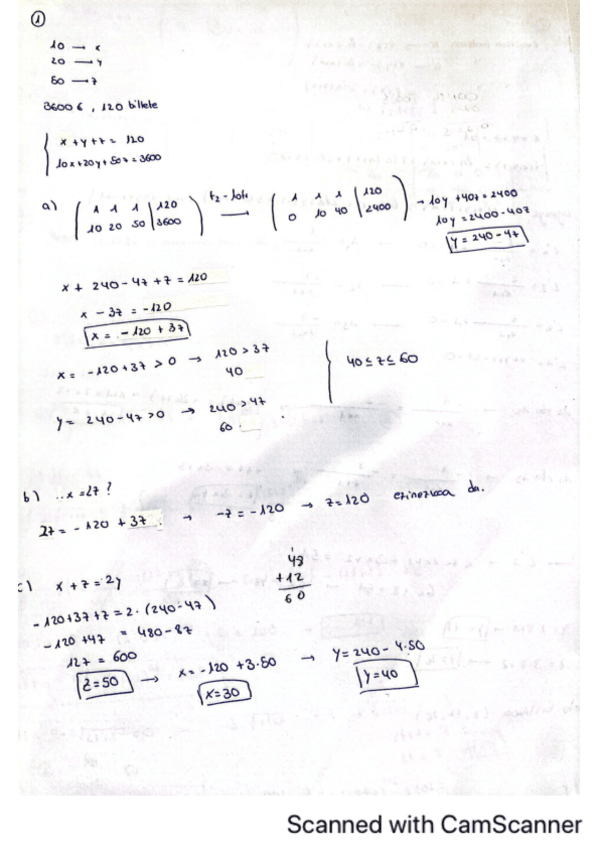 1
10 → x
20 → y
50 → z
3600 €, 120 billete
x + y + z = 120
10x + 20y + 50z = 3600
a) ( 1 1 1 | 120 ; 10 20 50 | 3600 ) → ( 1 1 1 | 120 ; 0 10 40 | 2400 ) → 10y + 40z = 2400
10y = 2400 - 40z
y = 240 - 4z
x + 240 - 4z + z = 120
x - 3z = -120
x = -120 + 3z
x = -120 + 3z > 0 → 120 > 3z
40
40 ≤ z ≤ 60
y = 240 - 4z > 0 → 240 > 4z
60
b) ..x = 2z ?
2z = -120 + 3z → -z = -120 → z = 120 ezinezkoa da.
c) x + z = 2y
48
+12
60
-120 + 3z + z = 2·(240 - 4z)
-120 + 4z = 480 - 8z
12z = 600
z = 50 → x = -120 + 3·50 → y = 240 - 4·50
x = 30
y = 40
Scanned with CamScanner